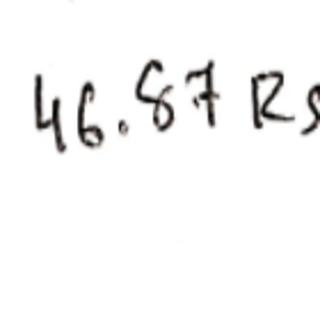 46.87 Rs